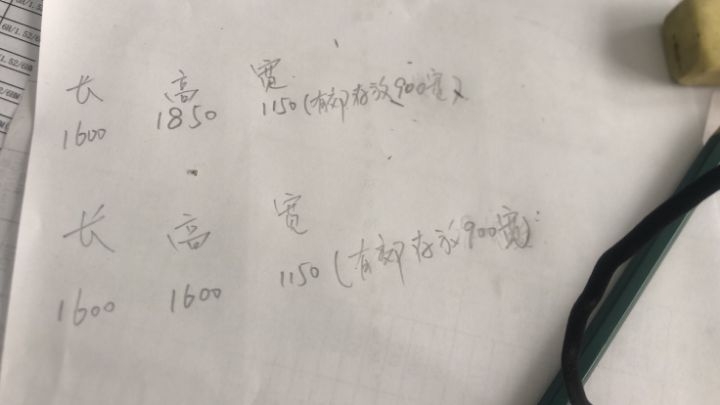 长 高 宽
1600 1850 1150(有效存放900宽)
长 高 宽
1600 1600 1150(有效存放900宽)